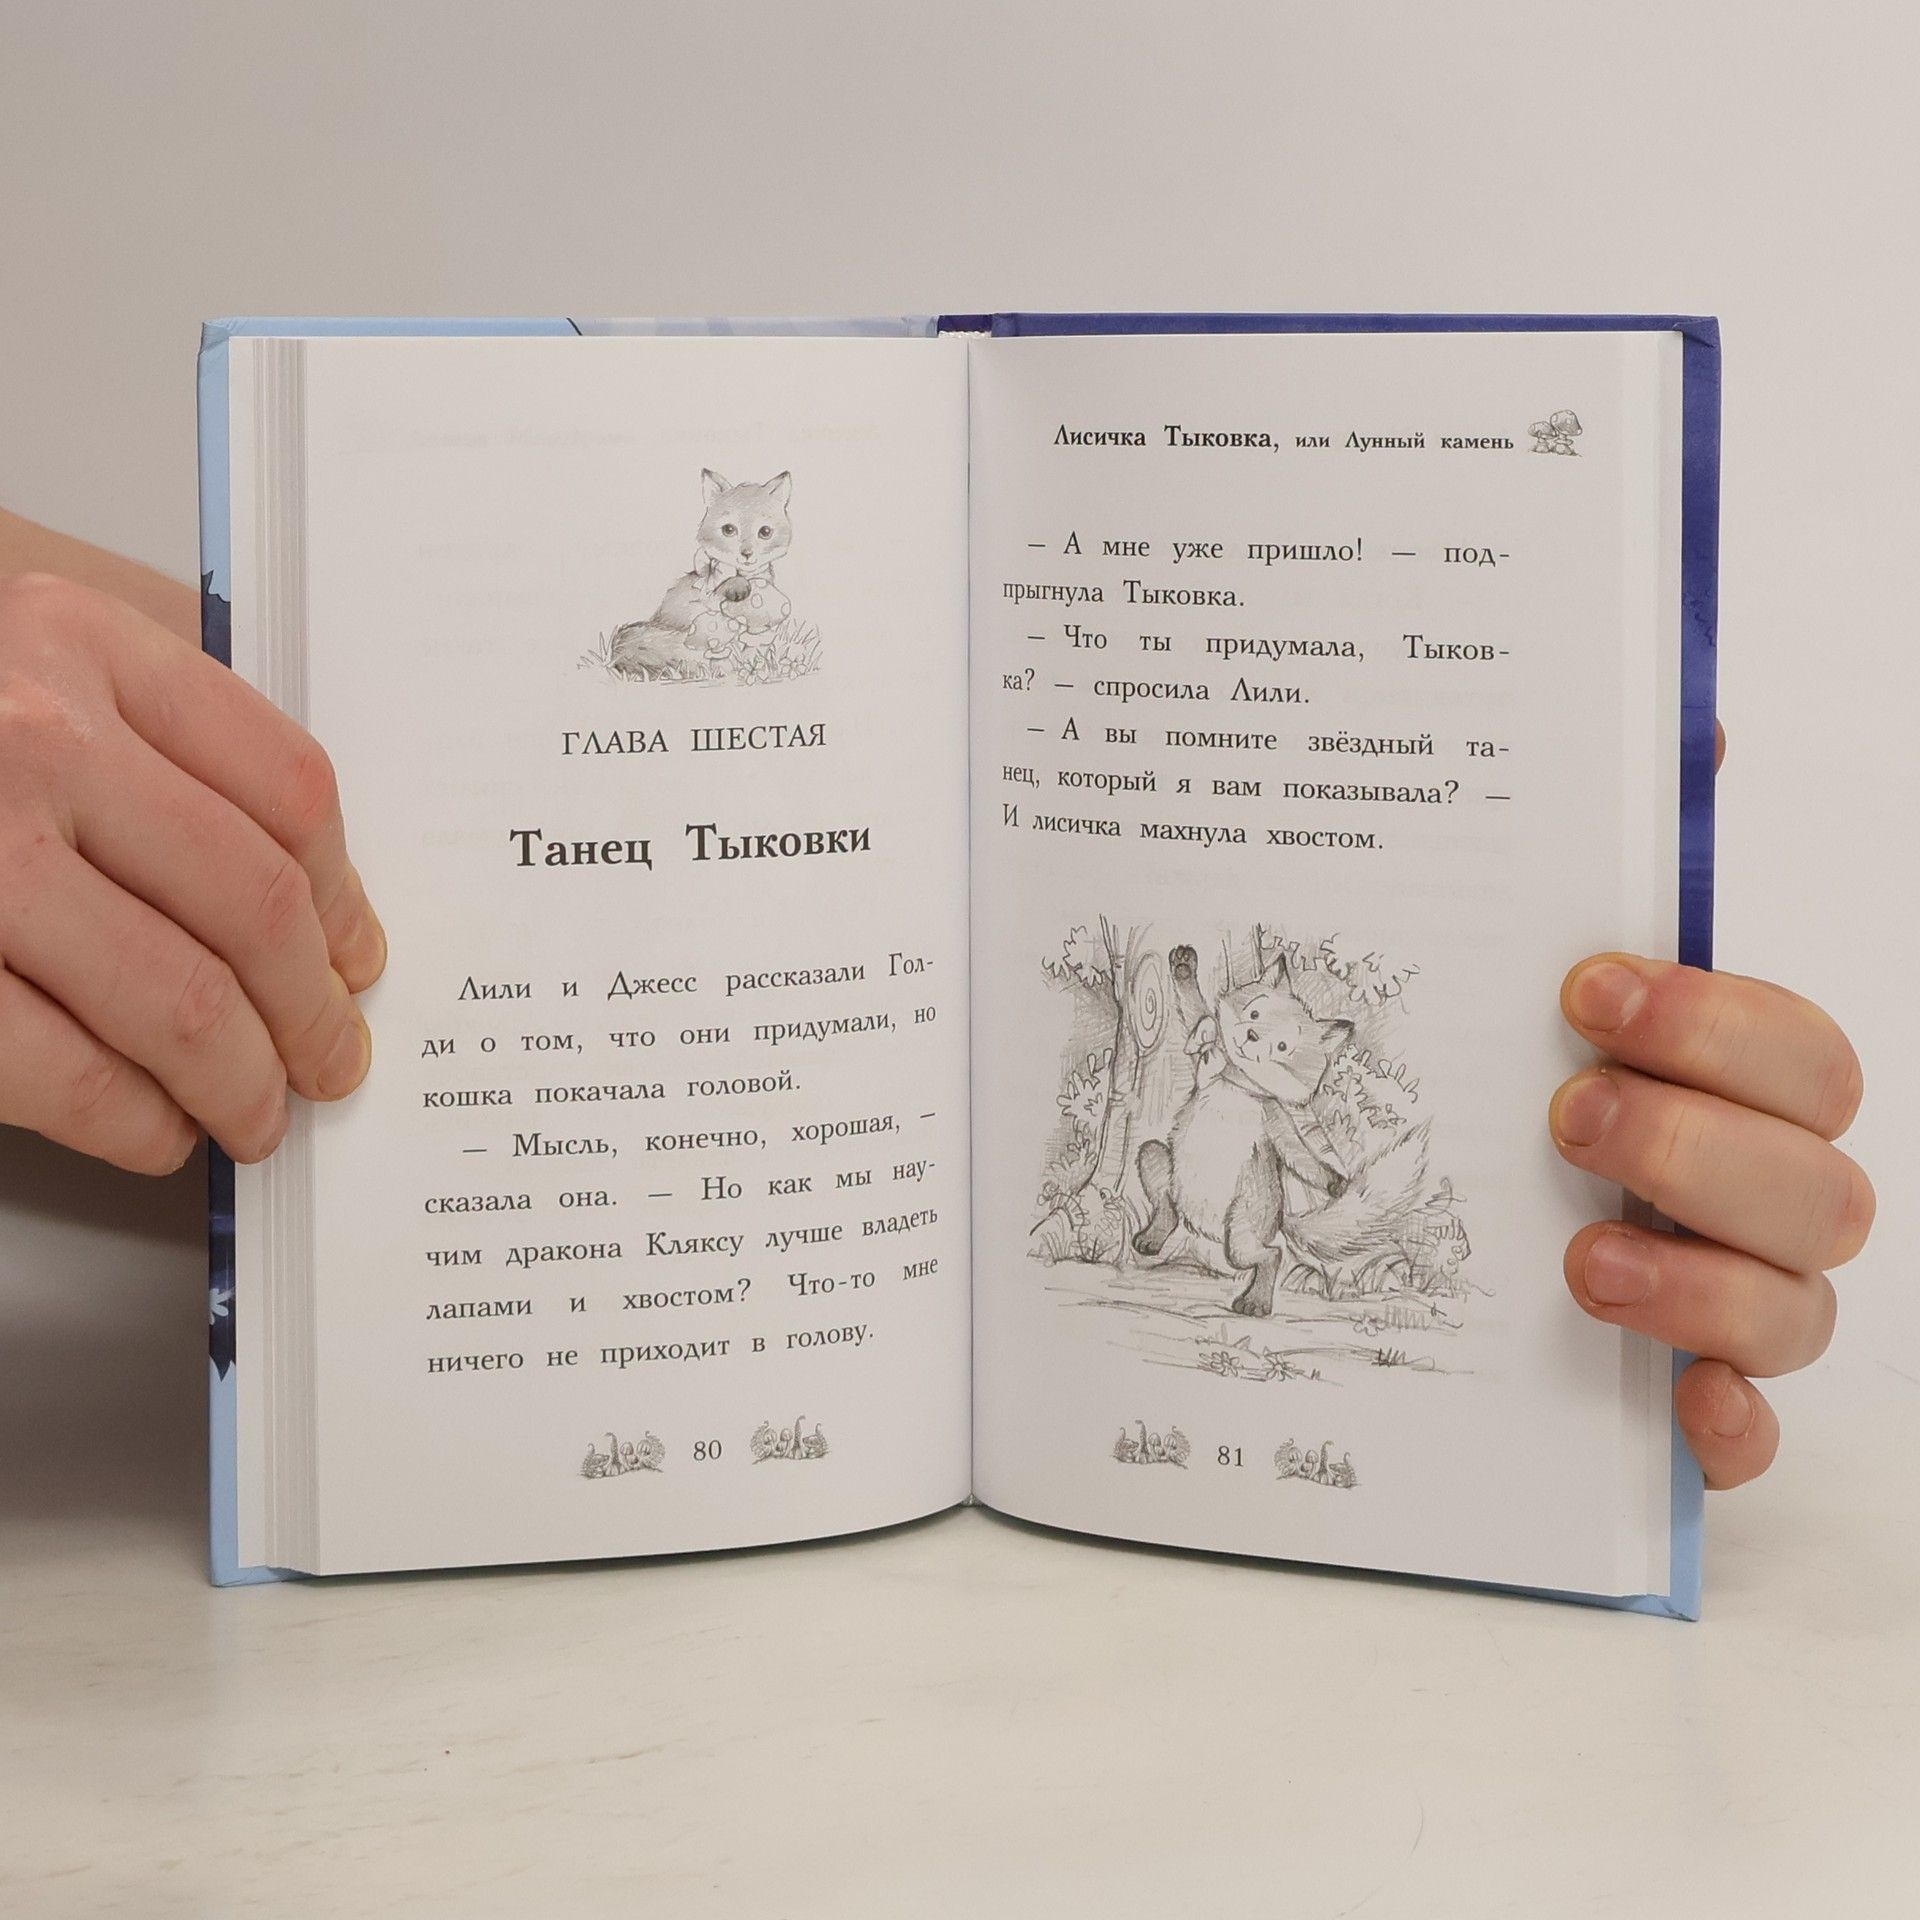 ГЛАВА ШЕСТАЯ
Танец Тыковки
Лили и Джесс рассказали Гол-
ди о том, что они придумали, но
кошка покачала головой.
— Мысль, конечно, хорошая, —
сказала она. — Но как мы нау-
чим дракона Кляксу лучше владеть
лапами и хвостом? Что-то мне
ничего не приходит в голову.
80
Лисичка Тыковка, или Лунный камень
— А мне уже пришло! — под-
прыгнула Тыковка.
— Что ты придумала, Тыков-
ка? — спросила Лили.
— А вы помните звёздный та-
нец, который я вам показывала? —
И лисичка махнула хвостом.
81